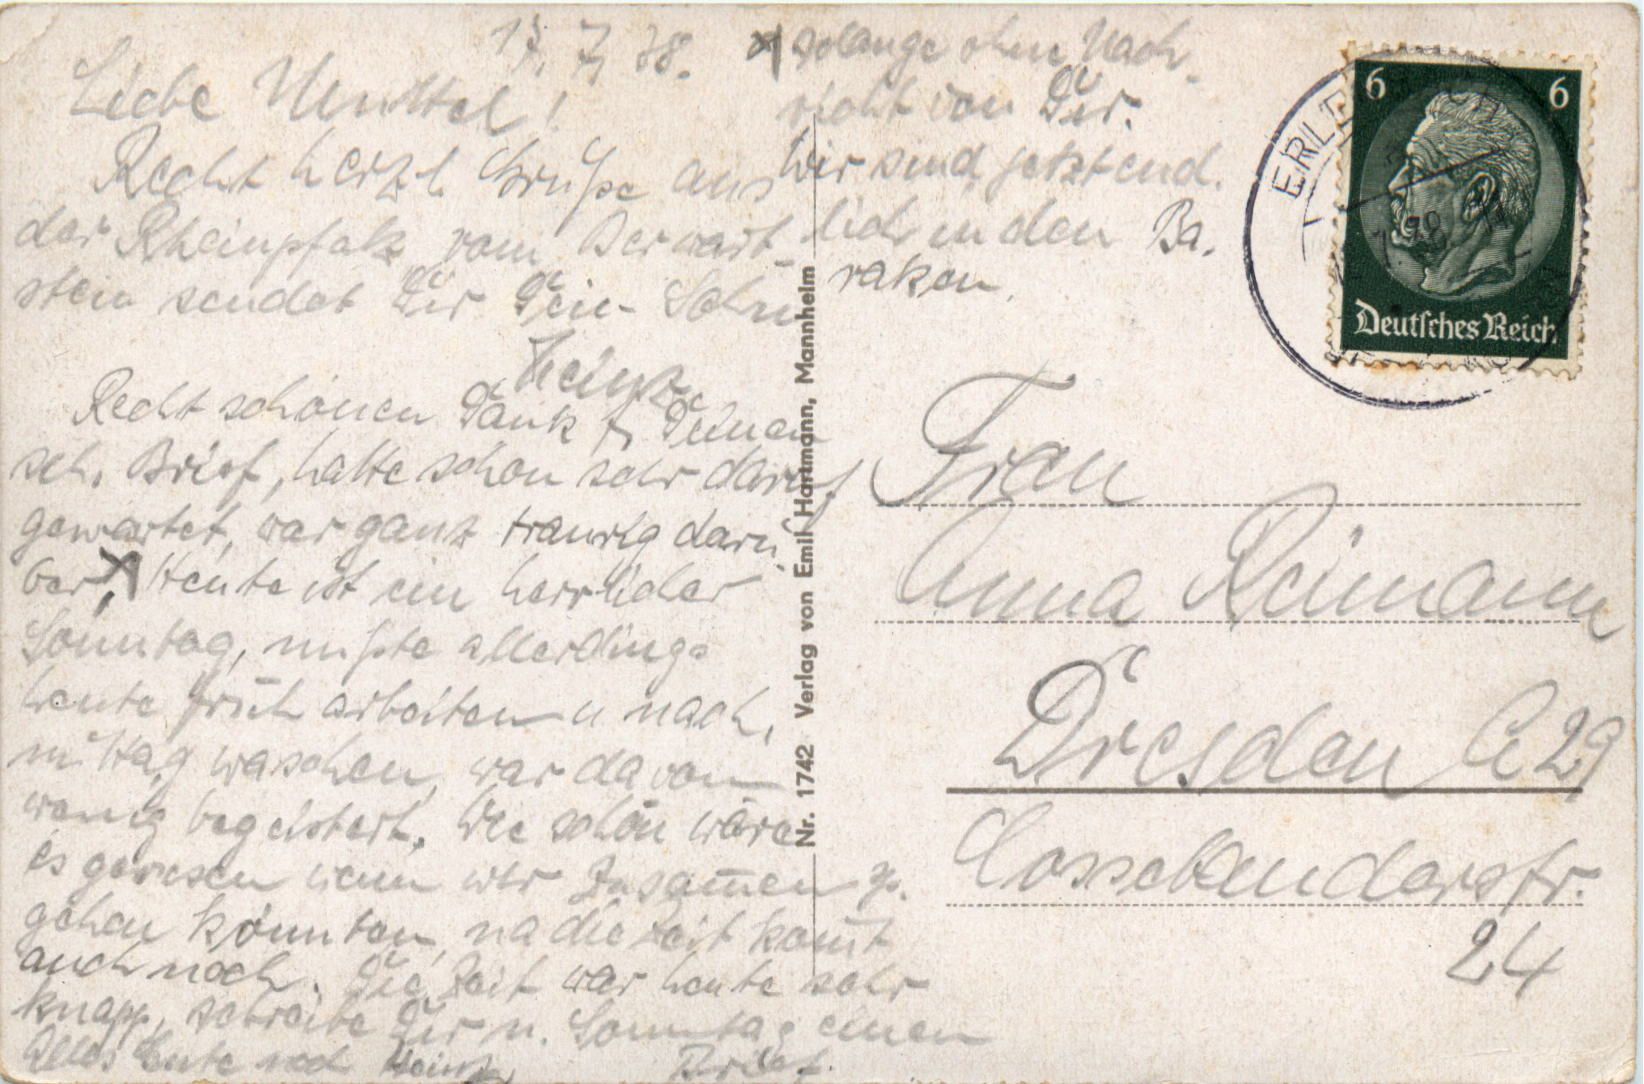 17. 7. 38.
Liebe Muttel!
Recht herzl Grüße aus
der Rheinpfalz vom Berwart-
stein sendet Dir Dein Sohn
Heinz
Recht schönen Dank f. Deinen
sch. Brief, hatte schon sehr darauf
gewartet, war ganz traurig darü-
ber, x Heute ist ein herrlicher
Sonntag, mußte allerdings
heute früh arbeiten u nach,
mittag waschen, war davon
wenig begeistert. Wie schön wäre
es gewesen wenn wir Zusam̅en sp.
gehen könnten, na die Zeit kom̅t
auch noch. Die Zeit war heute sehr
knapp, schreibe Dir n. Sonntag einen
Alles Gute noch Heinz Brief.
x solange ohne Nach-
richt von Dir.
Wir sind jetzt end.
lich in den Ba.
raken.
Nr. 1742 Verlag von Emil Hartmann, Mannheim
6 6
Deutsches Reich
ERL
Frau
Anna Reimann
Dresden A 29
Cossebauderstr.
24